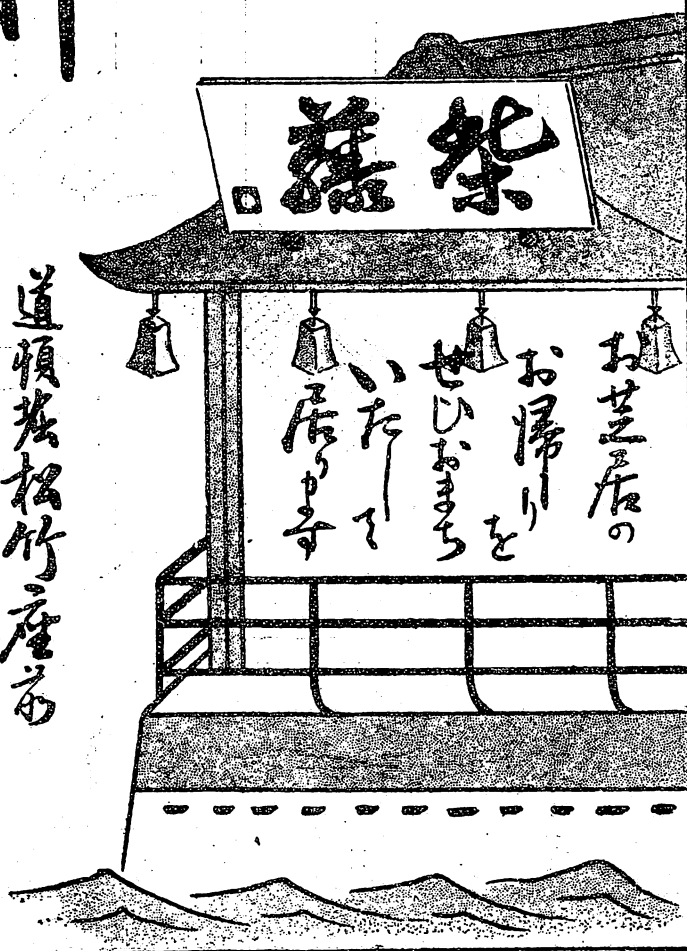 柴藤
お芝居の
お帰りを
ぜひおまち
いたして
居ります
道頓堀松竹座前